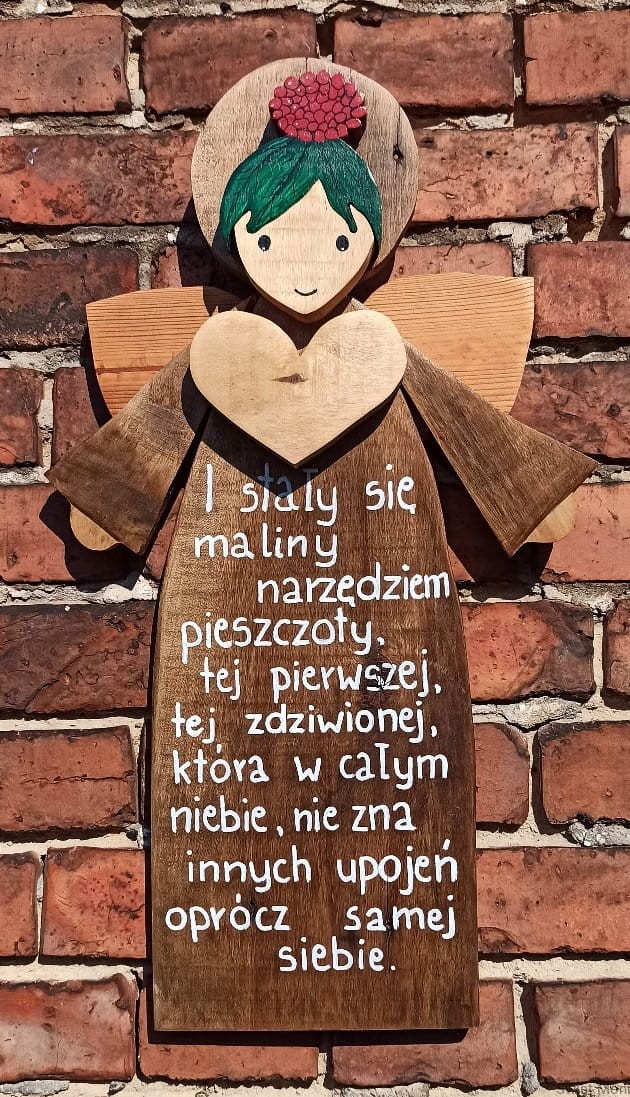 I stały się
maliny
narzędziem
pieszczoty,
tej pierwszej,
tej zdziwionej,
która w całym
niebie, nie zna
innych upojeń
oprócz samej
siebie.